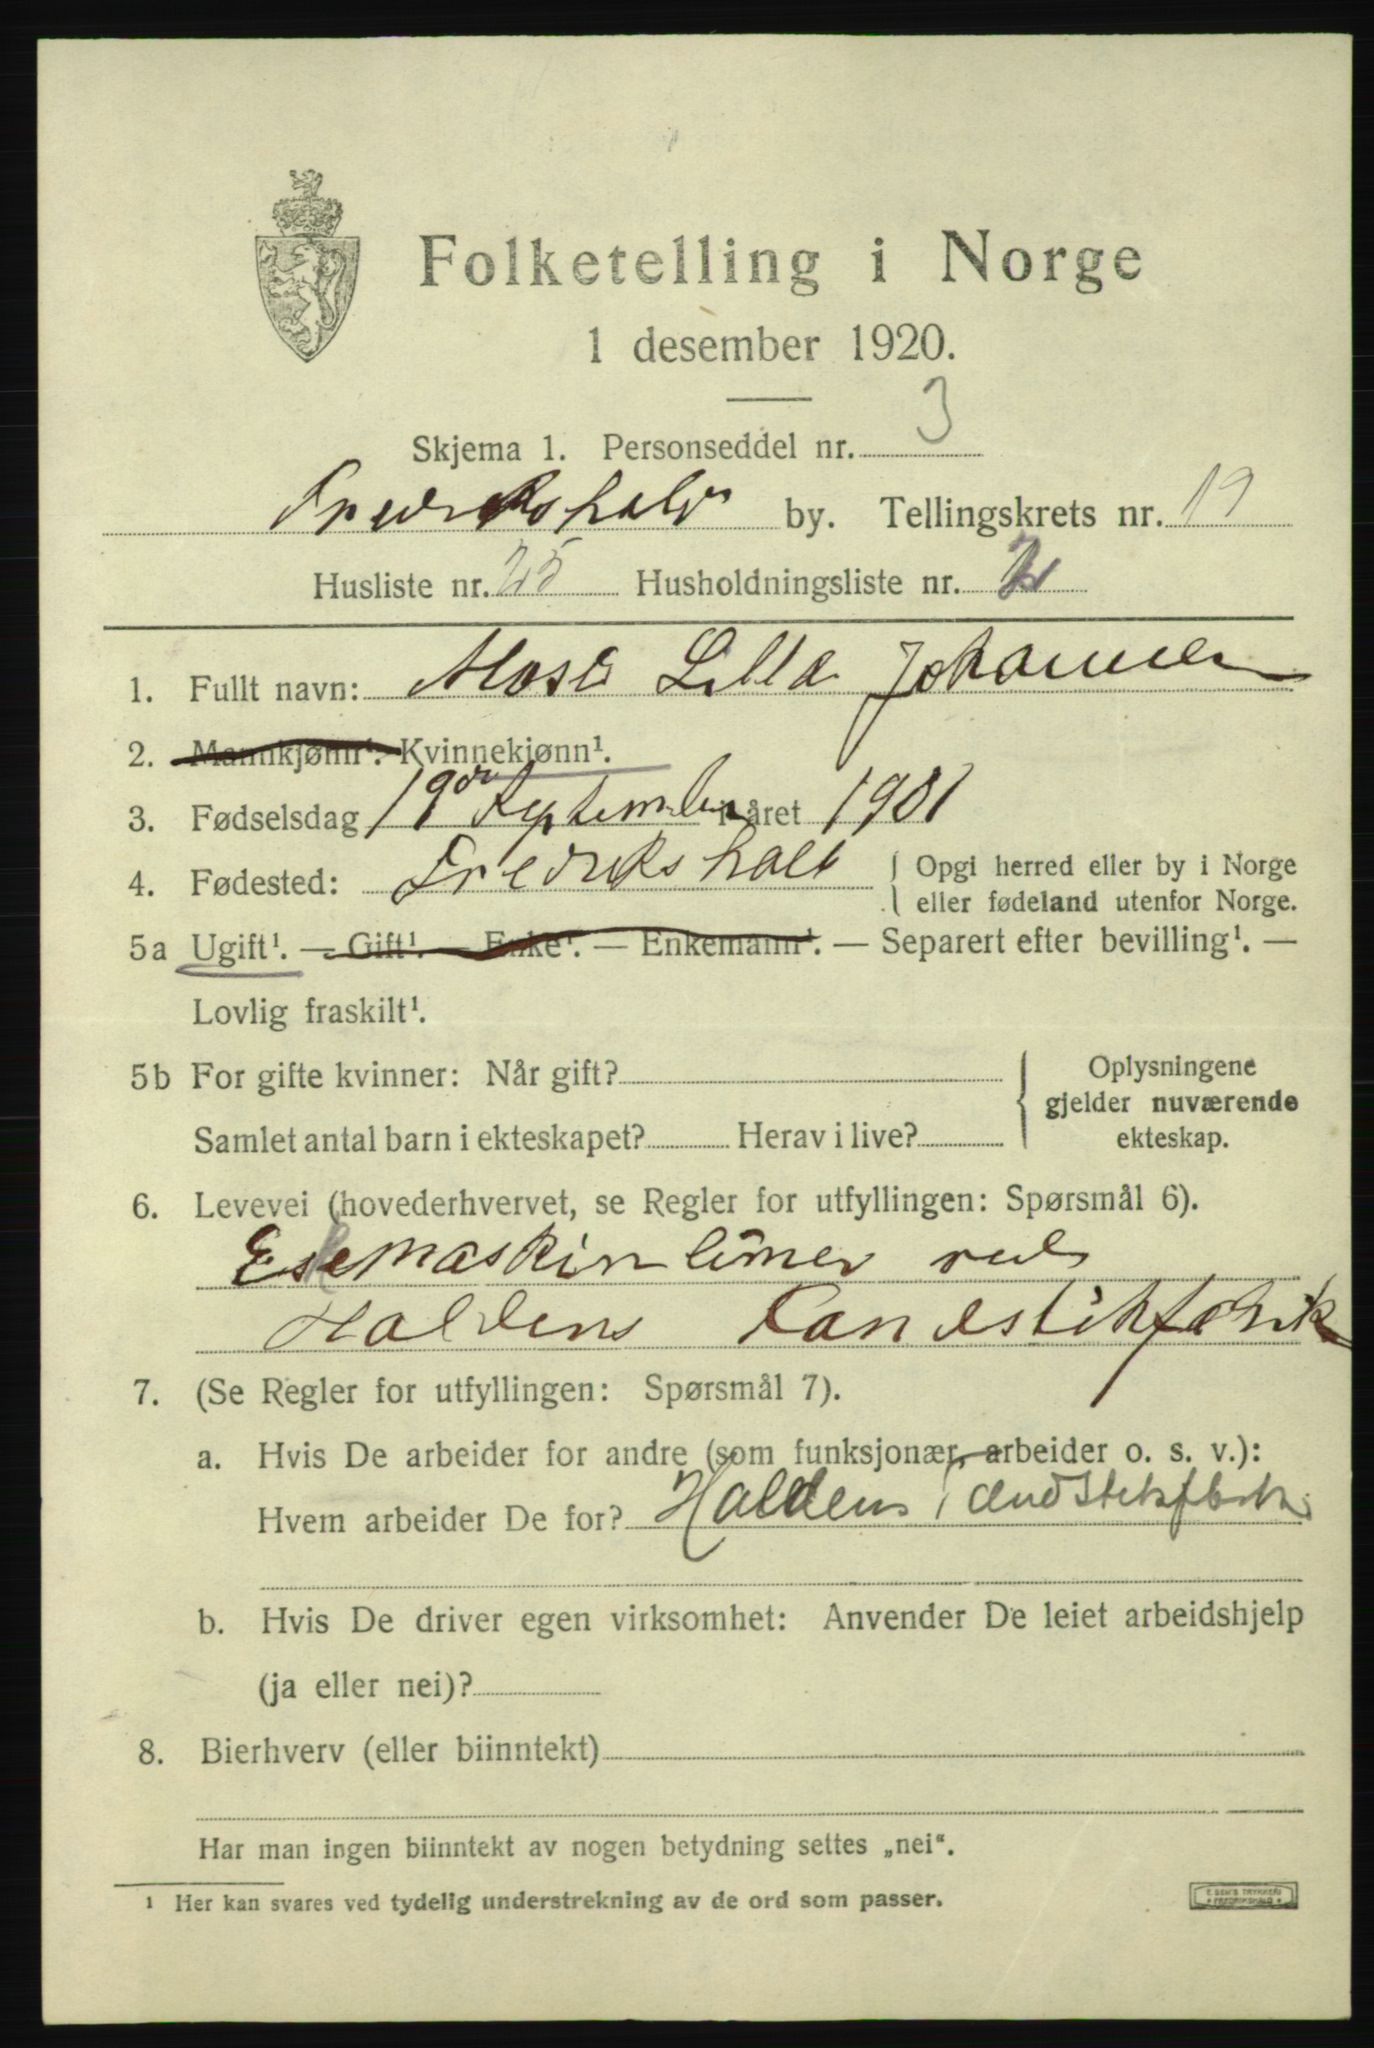 Folketelling i Norge
1 desember 1920.
Skjema 1. Personseddel nr. 3
Fredrikshald by. Tellingskrets nr. 19
Husliste nr. 25 Husholdningsliste nr.
1. Fullt navn: Lilla Johannes
2. Mannkjønn¹. Kvinnekjønn¹.
3. Fødselsdag 19de September i året 1901
4. Fødested: Fredrikshald { Opgi herred eller by i Norge
eller fødeland utenfor Norge.
5a Ugift¹. — Gift¹. — Enke¹. — Enkemann¹. — Separert efter bevilling¹. —
Lovlig fraskilt¹.
5b For gifte kvinner: Når gift? { Oplysningene
gjelder nuværende
Samlet antal barn i ekteskapet? Herav i live? ekteskap.
6. Levevei (hovederhvervet, se Regler for utfyllingen: Spørsmål 6).
Eskemaskin limer ved
Haldens Tandstikfabrik
7. (Se Regler for utfyllingen: Spørsmål 7).
a. Hvis De arbeider for andre (som funksjonær, arbeider o. s. v.):
Hvem arbeider De for? Haldens Tandstikfbrik
b. Hvis De driver egen virksomhet: Anvender De leiet arbeidshjelp
(ja eller nei)?
8. Bierhverv (eller biinntekt)
Har man ingen biinntekt av nogen betydning settes „nei“.
¹ Her kan svares ved tydelig understrekning av de ord som passer.
E. SEM'S TRYKKERI
FREDRIKSHALD